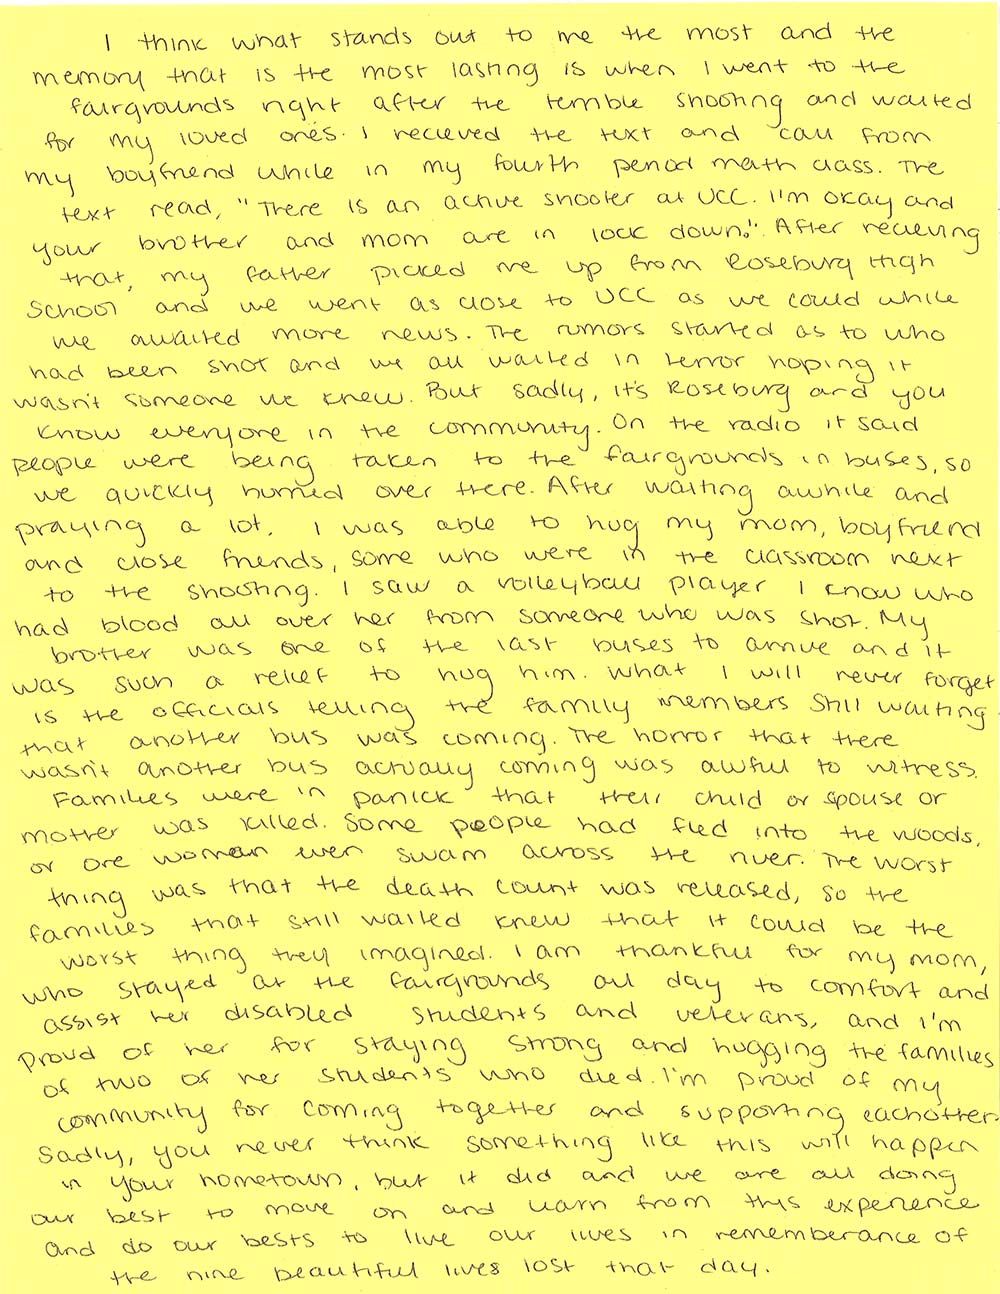 I think what stands out to me the most and the
memory that is the most lasting is when I went to the
fairgrounds right after the terrible shooting and waited
for my loved ones. I recieved the text and call from
my boyfriend while in my fourth period math class. The
text read, "There is an active shooter at UCC. I'm okay and
your brother and mom are in lock down." After recieving
that, my father picked me up from Roseburg High
School and we went as close to UCC as we could while
we awaited more news. The rumors started as to who
had been shot and we all waited in terror hoping it
wasn't someone we knew. But sadly, it's Roseburg and you
know everyone in the community. On the radio it said
people were being taken to the fairgrounds in buses, so
we quickly hurried over there. After waiting awhile and
praying a lot, I was able to hug my mom, boyfriend
and close friends, some who were in the classroom next
to the shooting. I saw a volleyball player I know who
had blood all over her from someone who was shot. My
brother was one of the last buses to arrive and it
was such a relief to hug him. What I will never forget
is the officials telling the family members still waiting
that another bus was coming. The horror that there
wasn't another bus actually coming was awful to witness.
Families were in panick that their child or spouse or
mother was killed. Some people had fled into the woods,
or one woman even swam across the river. The worst
thing was that the death count was released, so the
families that still waited knew that it could be the
worst thing they imagined. I am thankful for my mom,
who stayed at the fairgrounds all day to comfort and
assist her disabled students and veterans, and I'm
proud of her for staying strong and hugging the families
of two of her students who died. I'm proud of my
community for coming together and supporting eachother.
Sadly, you never think something like this will happen
in your hometown, but it did and we are all doing
our best to move on and learn from this experience
and do our bests to live our lives in rememberance of
the nine beautiful lives lost that day.